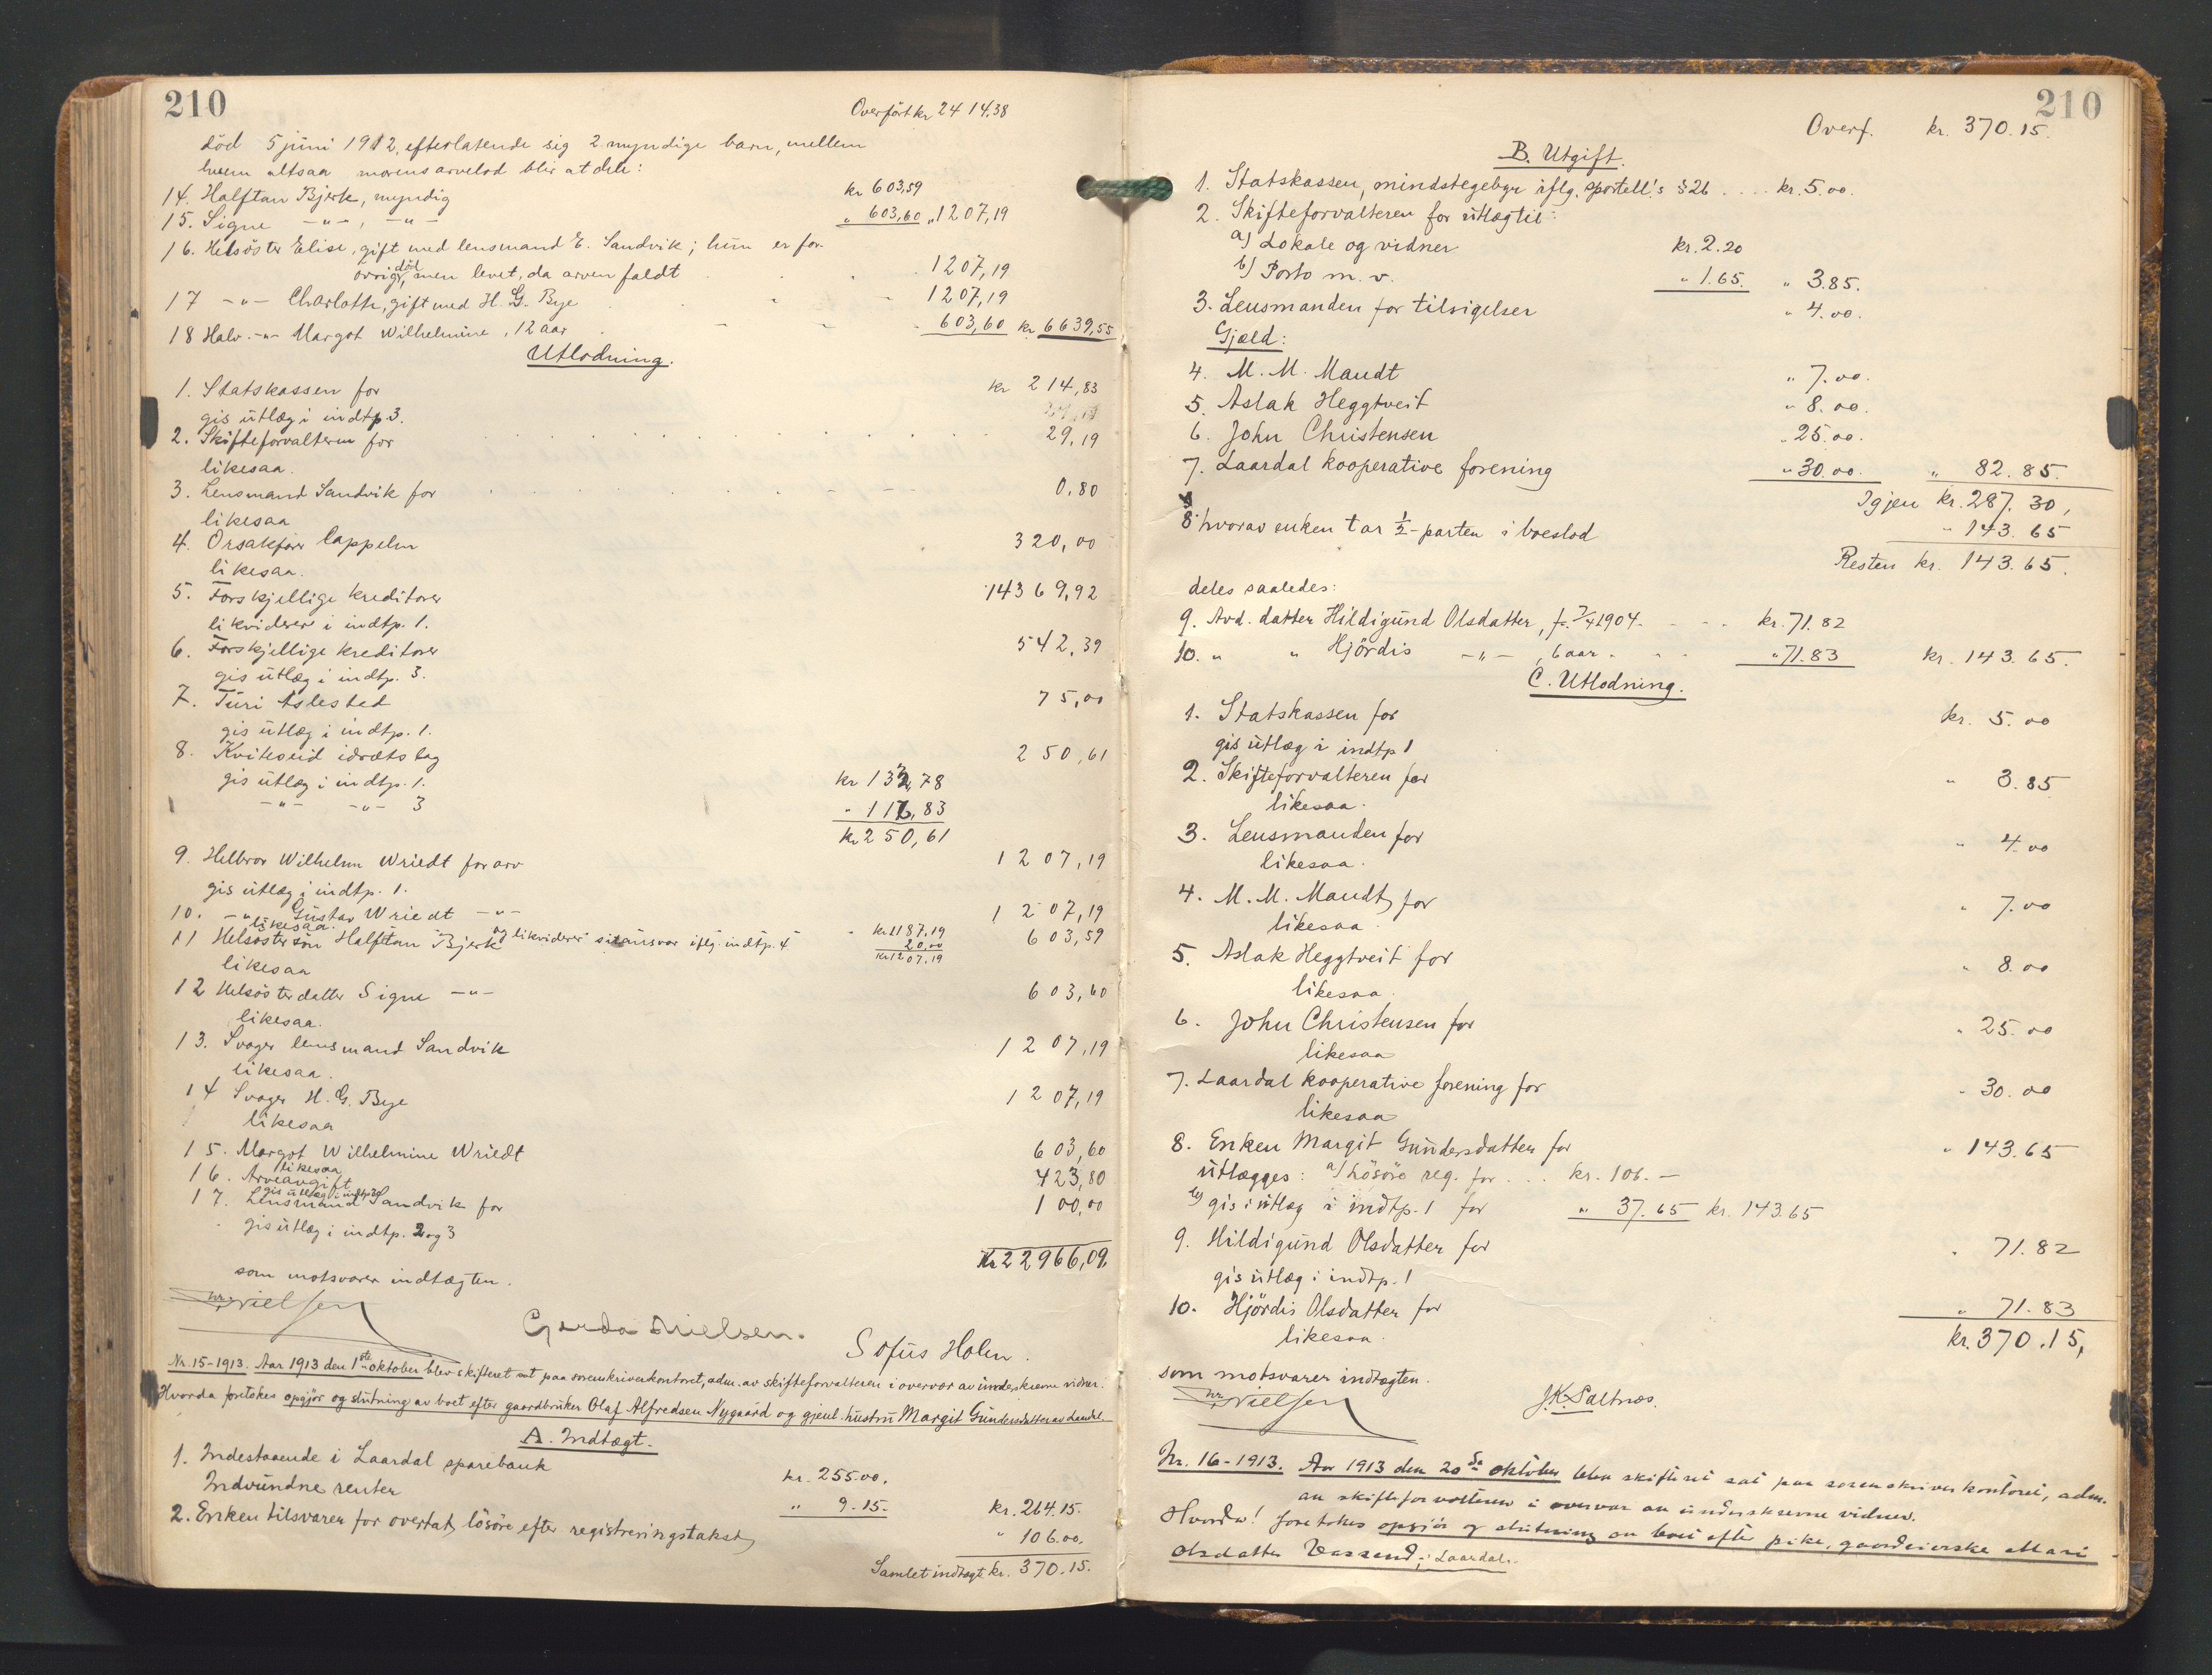 210
Overført kr 2414.38
död 5 juni 1912, efterlatende sig 2 myndige barn, mellem
hvem altsaa morens arvelod blir at dele:
14. Halftan Bjerk, myndig kr 603,59
15. Signe -"- , -"- " 603,60 " 1207,19
16. Helsöster Elise, gift med lensmand E. Sandvik; hun er for-
övrig död, men levet, da arven faldt 1207,19
17 -"- Charlotte, gift med H. G. Bye 1207,19
18 Halv -"- Margot Wilhelmine, 12 aar 603,60 kr 6639,55
Utlodning.
1. Statskassen for kr 214,83
gis utlæg i indtp 3.
2. Skifteforvalteren for 29,19
likesaa.
3. Lensmand Sandvik for 0.80
likesaa
4. Orsakförer Cappelen 320,00
likesaa.
5. Forskjellige kreditorer 14369,92
likviderer i indtp. 1.
6. Forskjellige kreditorer 542,39
gis utlæg i indtp. 3.
7. Turi Aslested 75,00
gis utlæg i indtp. 1.
8. Kviteseid idrætslag 250,61
gis utlæg i indtp. 1. kr 133,78
-"- -"- 3 " 116,83
kr 250,61
9. Helbror Wilhelm Wriedt for arv 1207,19
gis utlæg i indtp. 1.
10. -"- Gustav Wriedt -"- 1207,19
likesaa. og likviderer sit ansvar iflg. indtp. 4 kr 1187.19
20.00
kr 1207.19
11 Helsöstersön Halftan Bjerk 603,59
likesaa
12 Helsösterdatter Signe -"- 603,60
likesaa.
13. Svoger lensmand Sandvik 1207,19
likesaa.
14 Svoger H. G. Bye 1207,19
likesaa
15. Margot Wilhelmine Wriedt 603,60
likesaa
16. Arveavgift 423,80
gis utlæg i indtp 3
17. Lensmand Sandvik for 100,00
gis utlæg i indtp. 2 og 3
Kr 22966,09.
som motsvarer indtægten.
Nielsen
Gerda Nielsen. Sofus Holen.
Nr. 15-1913. Aar 1913 den 1ste oktober blev skifteret sat paa sorenskriverkontoret, adm. av skifteforvalteren i overvær av underskrevne vidner.
Hvorda foretokes opgjør og slutning av boet efter gaardbruker Olaf Alfredsen Nygaard og gjenl. hustru Margit Gundersdatter av
A. Indtægt.
1. Indestaaende i Laardal sparebank kr. 255.00.
Indvundne renter " 9.15. kr. 264.15.
2. Enken tilsvarer for overtat lösöre efter registreringstakst " 106.00.
Samlet indtægt kr. 370.15.
210
Overf. kr. 370.15.
B. Utgift.
1. Statskassen, mindstegebyr iflg. sportell's § 26 .... kr. 5.00.
2. Skifteforvalteren for utlæg til:
a) Lokale og vidner kr. 2.20
b) Porto m. v. " 1.65. " 3.85.
3. Lensmanden for tilsigelser " 4.00.
Gjæld:
4. M. M. Mandt " 7.00.
5. Aslak Heggtveit " 8.00.
6. John Christensen " 25.00.
7. Laardal kooperative forening " 30.00. " 82.85.
Igjen kr. 287.30,
8. hvorav enken tar ½-parten i boeslod " 143.65
Resten kr. 143.65.
deles saaledes:
9. Avd. datter Hildigund Olsdatter, f. 7/4 1904. kr. 71.82
10. " " Hjördis -"- , 6 aar. " 71.83 kr. 143.65.
C. Utlodning.
1. Statskassen for kr. 5.00
gis utlæg i indtp 1
2. Skifteforvalteren for " 3.85
likesaa.
3. Lensmanden for " 4.00
likesaa.
4. M. M. Mandt for " 7.00
likesaa
5. Aslak Heggtveit for " 8.00
likesaa.
6. John Christensen for " 25.00
likesaa
7. Laardal kooperative forening for " 30.00
likesaa
8. Enken Margit Gundersdatter for " 143.65
utlægges: a) Lösöre reg. for ... kr. 106.—
b) gis i utlæg i indtp. 1 for " 37.65 kr. 143.65
9. Hildigund Olsdatter for " 71.82
gis utlæg i indtp. 1
10. Hjördis Olsdatter for " 71.83
likesaa.
kr. 370.15,
som motsvarer indtægten.
Nielsen
J.K. Saltnes.
Nr. 16-1913. Aar 1913 den 20de oktober blev skifteret sat paa sorenskriverkontoret, adm.
av skifteforvalteren i overvær av underskrevne vidner.
Hvorda! foretokes opgjör og slutning av boet efter pike, gaardeierske Mari
Olsdatter Vassend, i Laardal.